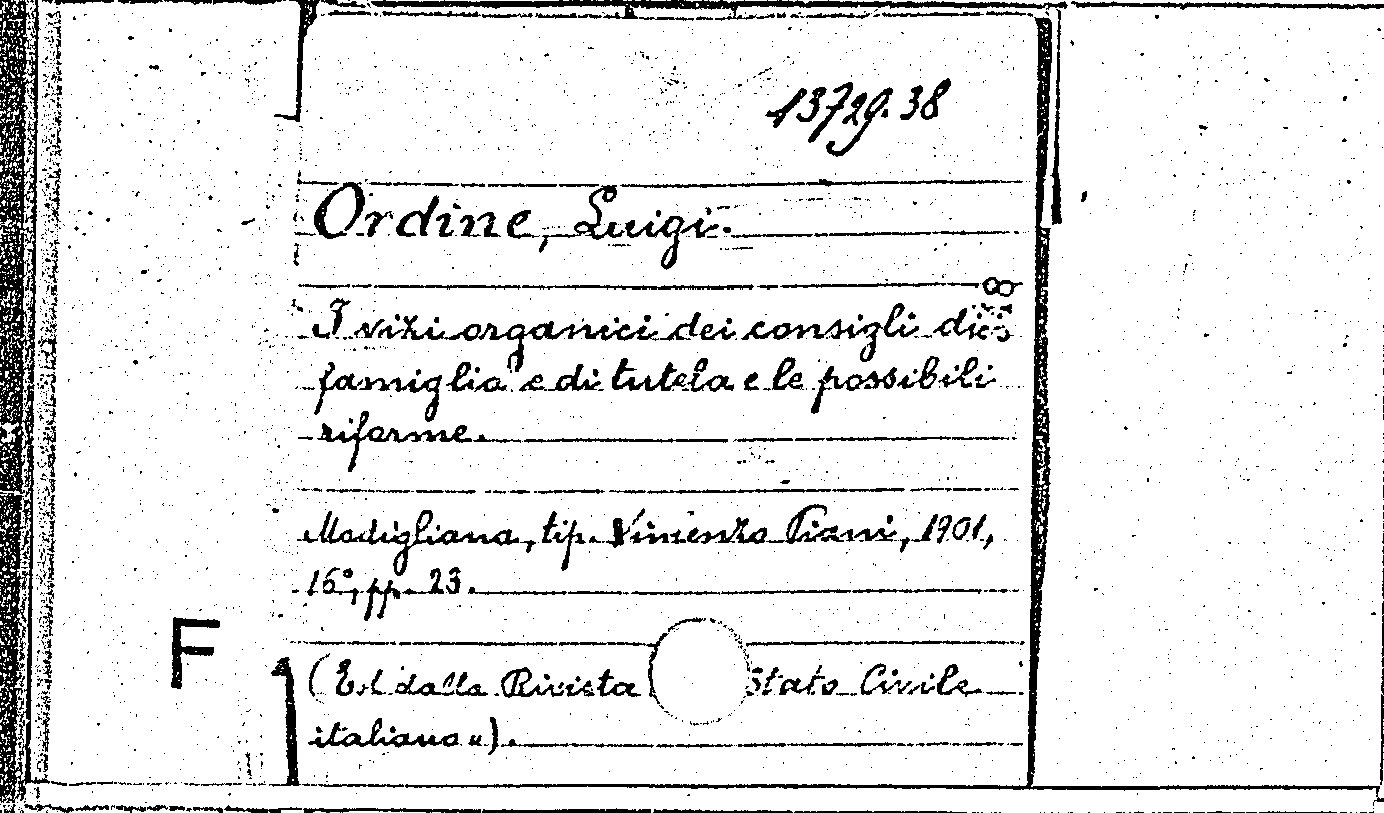 13729.38
Ordine, Luigi.
I vizi organici dei consigli di
famiglia e di tutela e le possibili
riforme.
Modigliana, tip. Vincenzo Piani, 1901,
16°, pp. 23.
F
(Est. dalla Rivista Stato Civile
italiano").